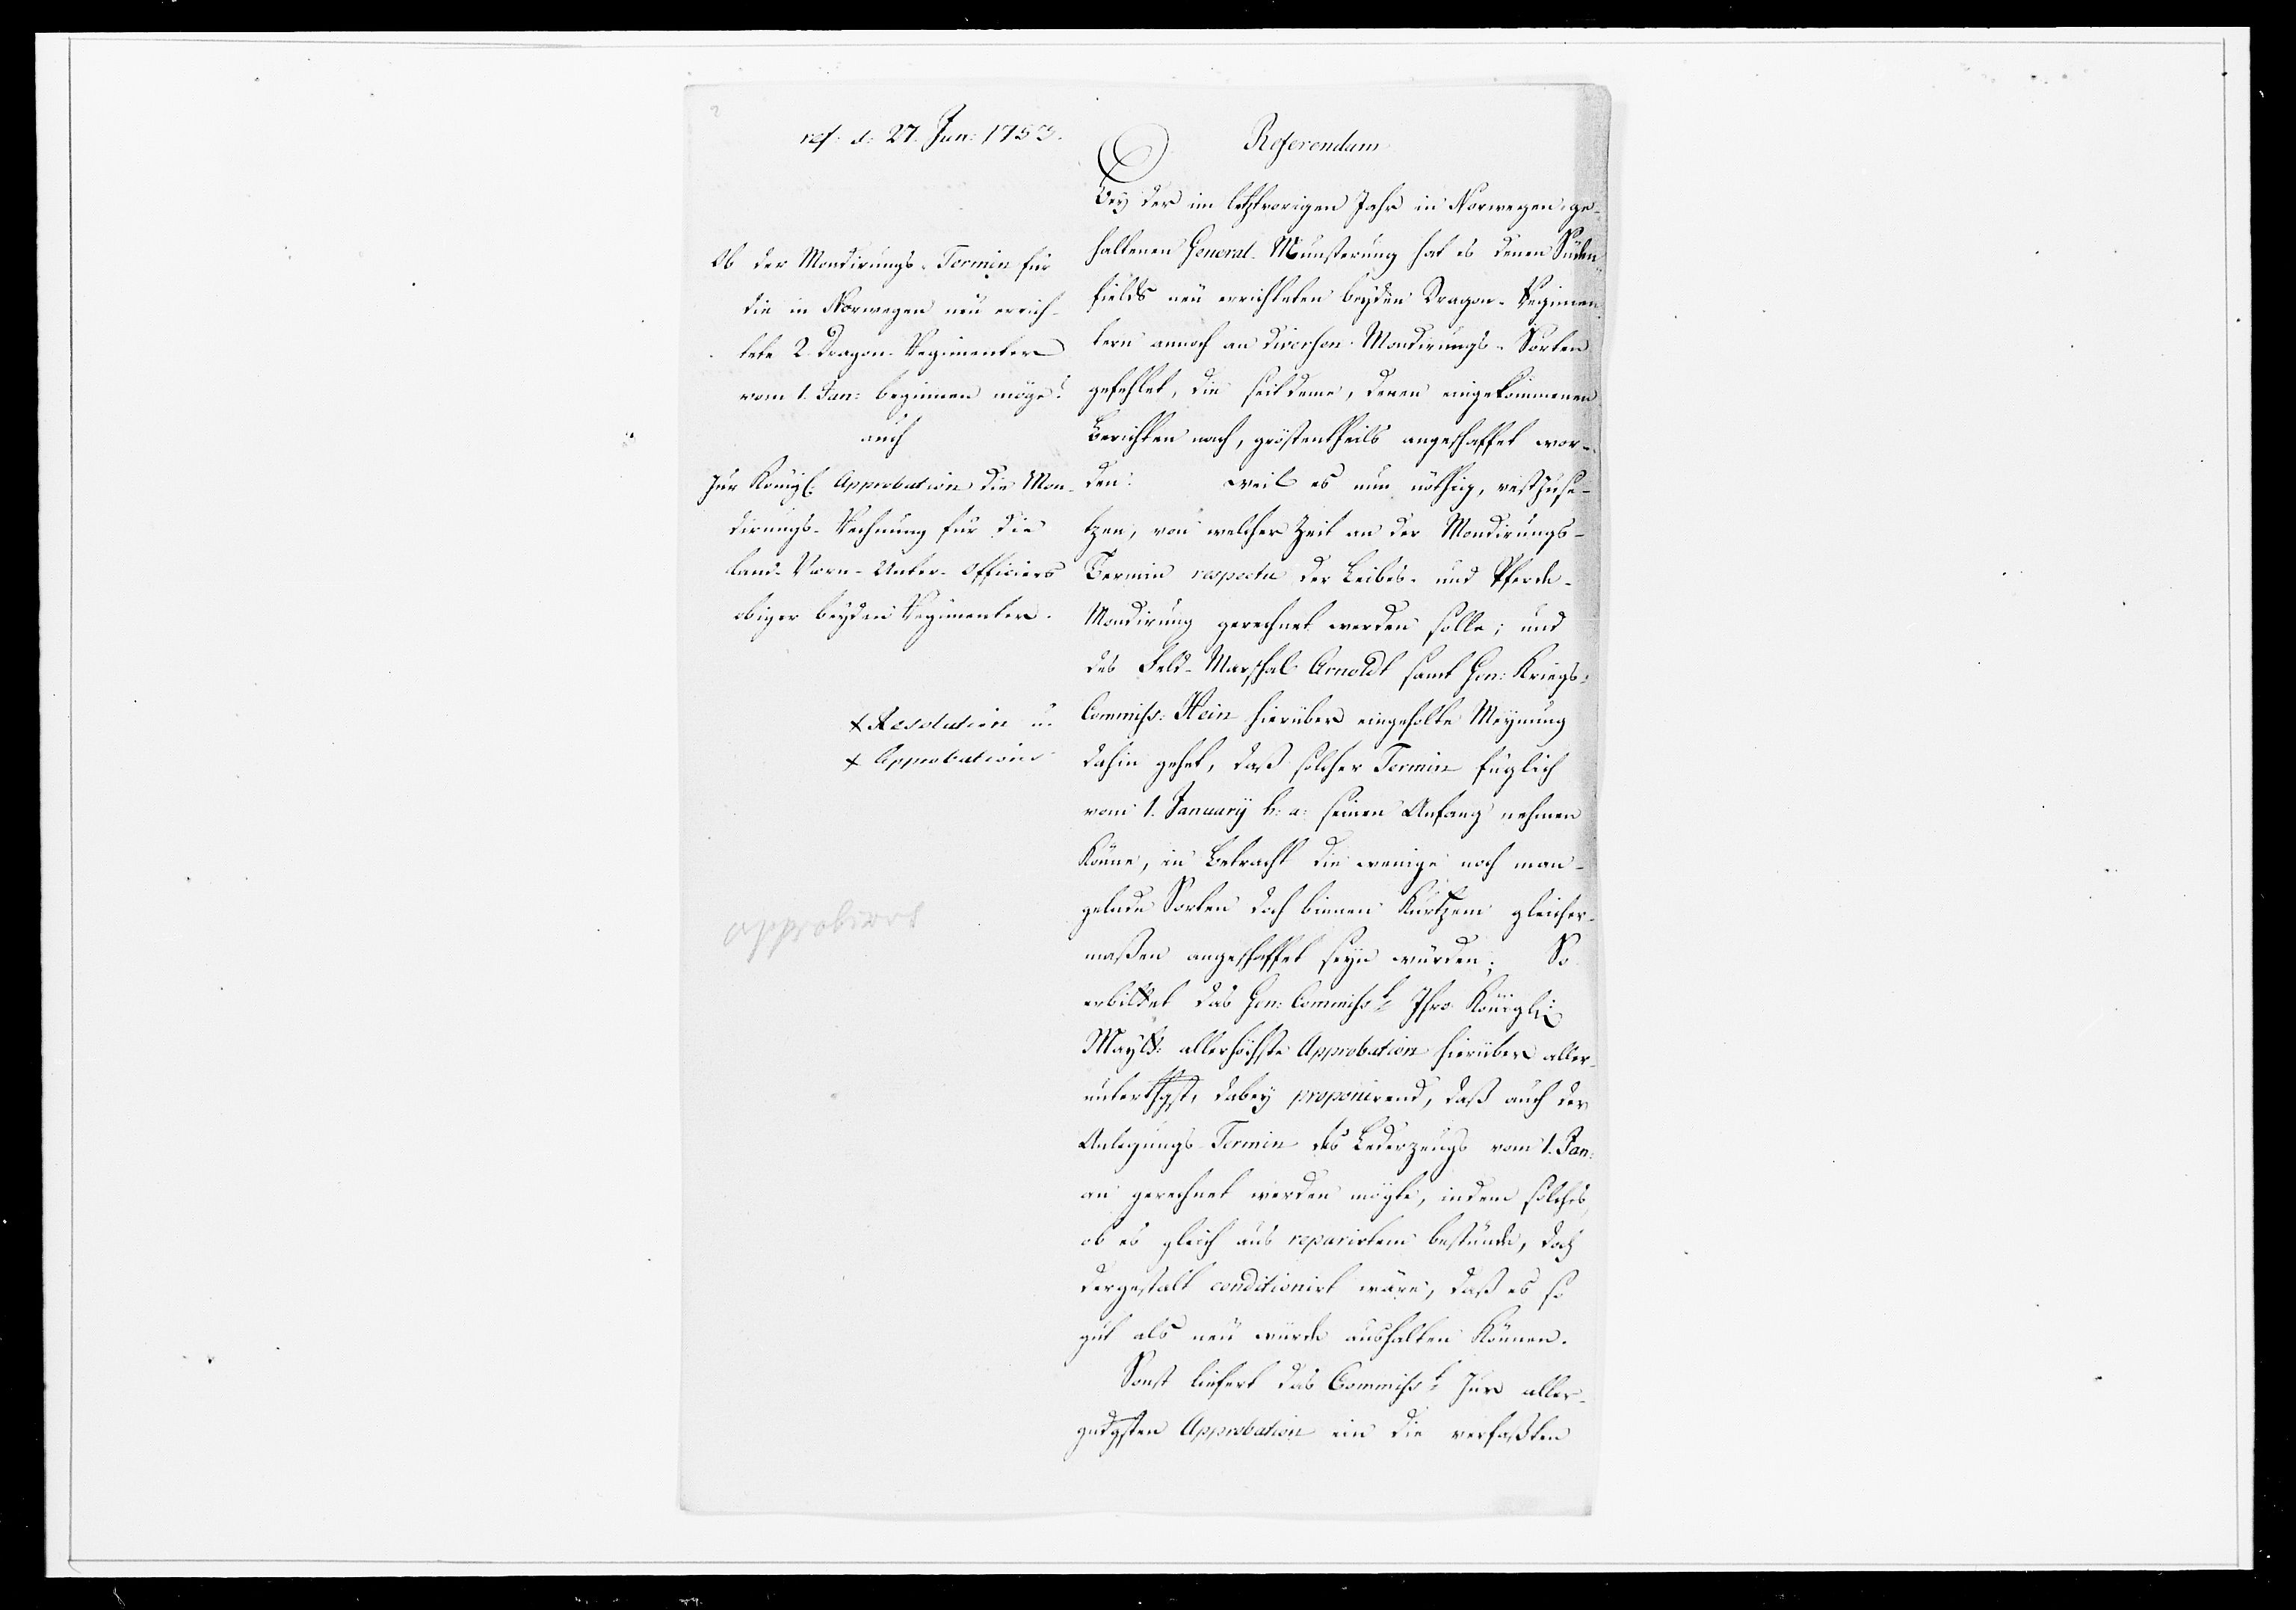 2
ref: d: 27. Jun: 1753.
Ob der Mondirungs-Termin für
die in Norwegen neu errich-
tete 2. Dragon-Regimenter
vom 1. Jan: beginnen möge?
auch
Zur Königl: Approbation die Mon-
dirungs-Rechnung für die
Land-Vorn-Unter-Officiers
obiger beyden Regimenter.
x Resolution u.
x Approbation
approbiret
Referendum
Bey der im letztvorigen Jahr in Norwegen ge-
haltenen General-Munsterung hat es denen Süden-
fields neu errichteten beyden Dragon-Regimen-
tern annoch an diversen Mondirungs-Sorten
gefehlet, die seit deme, denen eingekommenen
Berichten nach, gröstentheils angeschaffet wor-
den: Weil es nun nöthig, vestzuse-
tzen, von welcher Zeit an der Mondirungs-
Termin respectu der Leibes- und Pferde-
Mondirung gerechnet werden solle; und
des Feld-Marschal Arnoldt samt Gen: Kriegs-
Commiss: Hein hierüber eingeholte Meynung
dahin gehet, daß solcher Termin füglich
vom 1. January h: a: seinen Anfang nehmen
könne, in Betracht die wenige noch man-
gelnde Sorten doch binnen kurtzem gleicher-
maßen angeschaffet seyn würden; So
erbittet das Gen: Commiss:t Ihro Königl:
Mayts: allerhöchste Approbation hierüber aller-
unterthgst, dabey proponirend, daß auch der
Anlegungs-Termin des Lederzeugs vom 1. Jan:
an gerechnet werden mögte, indem solches,
ob es gleich aus reparirtem bestünde, doch
dergestalt conditionirt wäre, daß es so
gut als neu würde aushalten können.
Sonst liefert das Commiss:t zur aller-
gndgsten Approbation ein die verfaßten